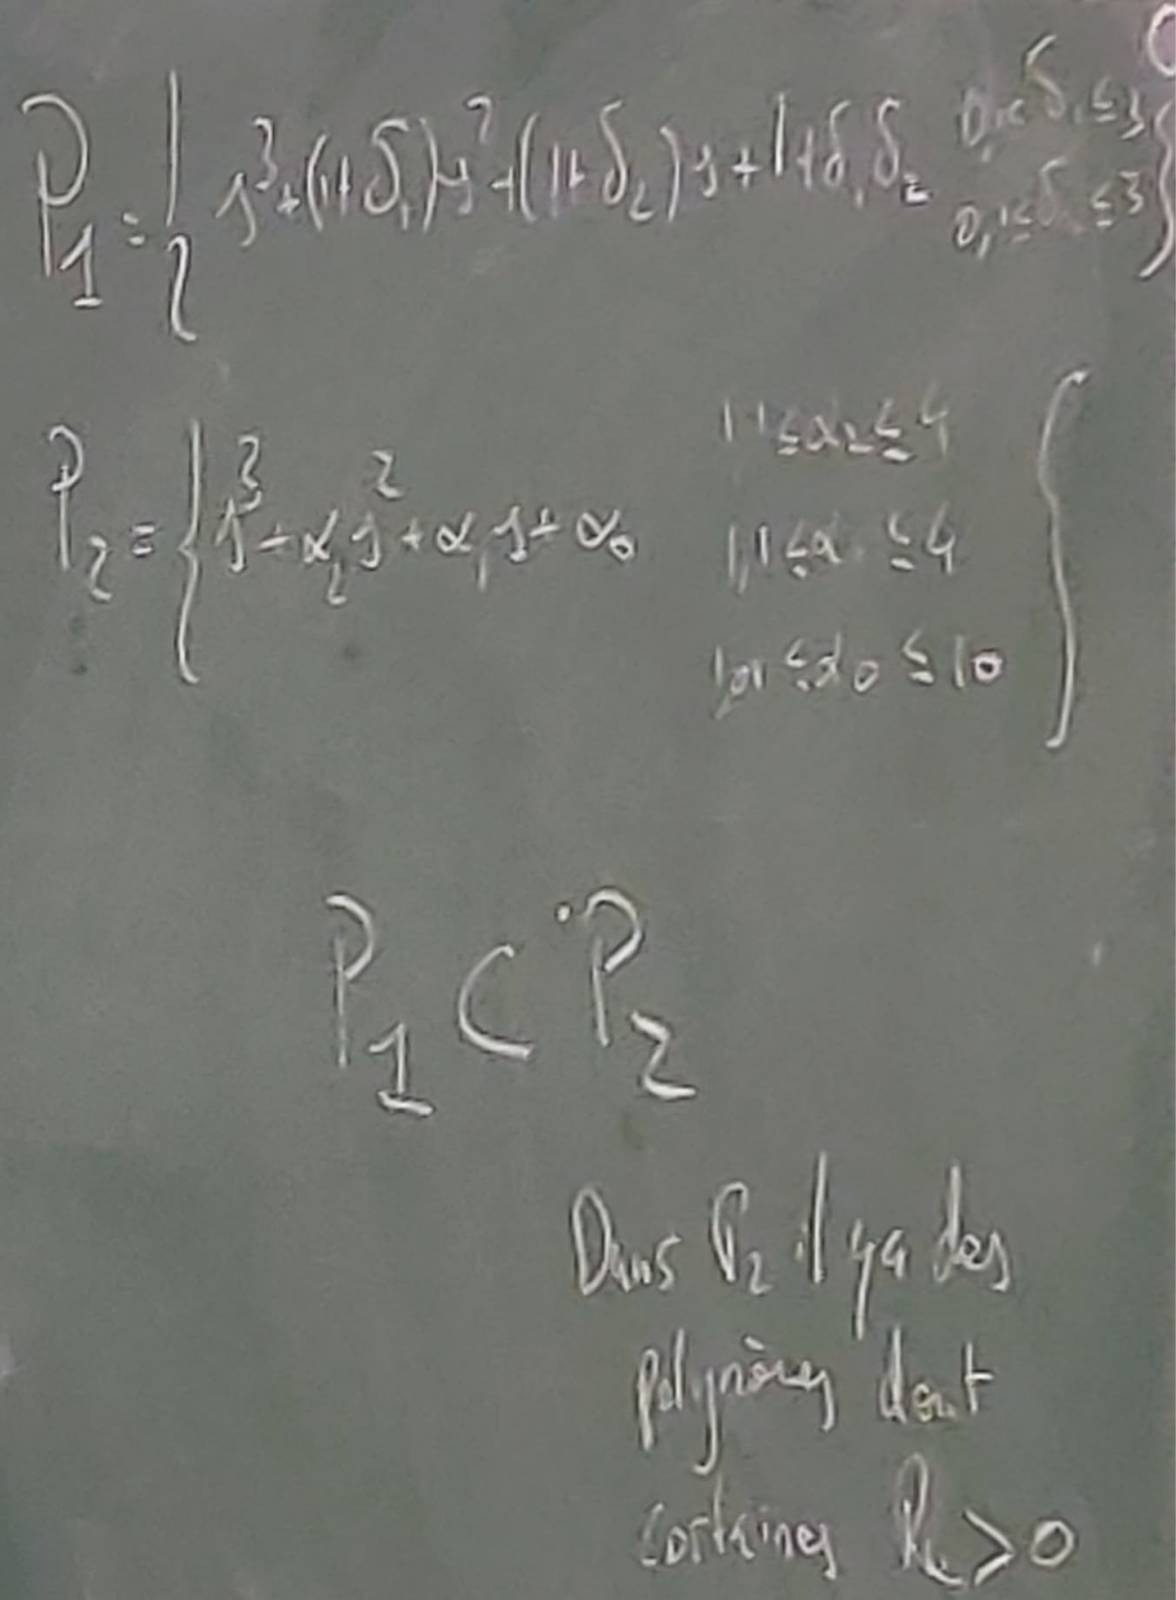 P₁ = { s³+(1+δ₁)s²+(1+δ₂)s+1+δ₁δ₂ 0,1≤δ₁≤3
0,1≤δ₂≤3 }
P₂ = { s³+α₂s²+α₁s+α₀ 1,1≤α₂≤4
1,1≤α₁≤4
1,01≤α₀≤10 }
P₁ ⊂ P₂
Dans P₂ il y a des
polynômes dont
certaines Re>0